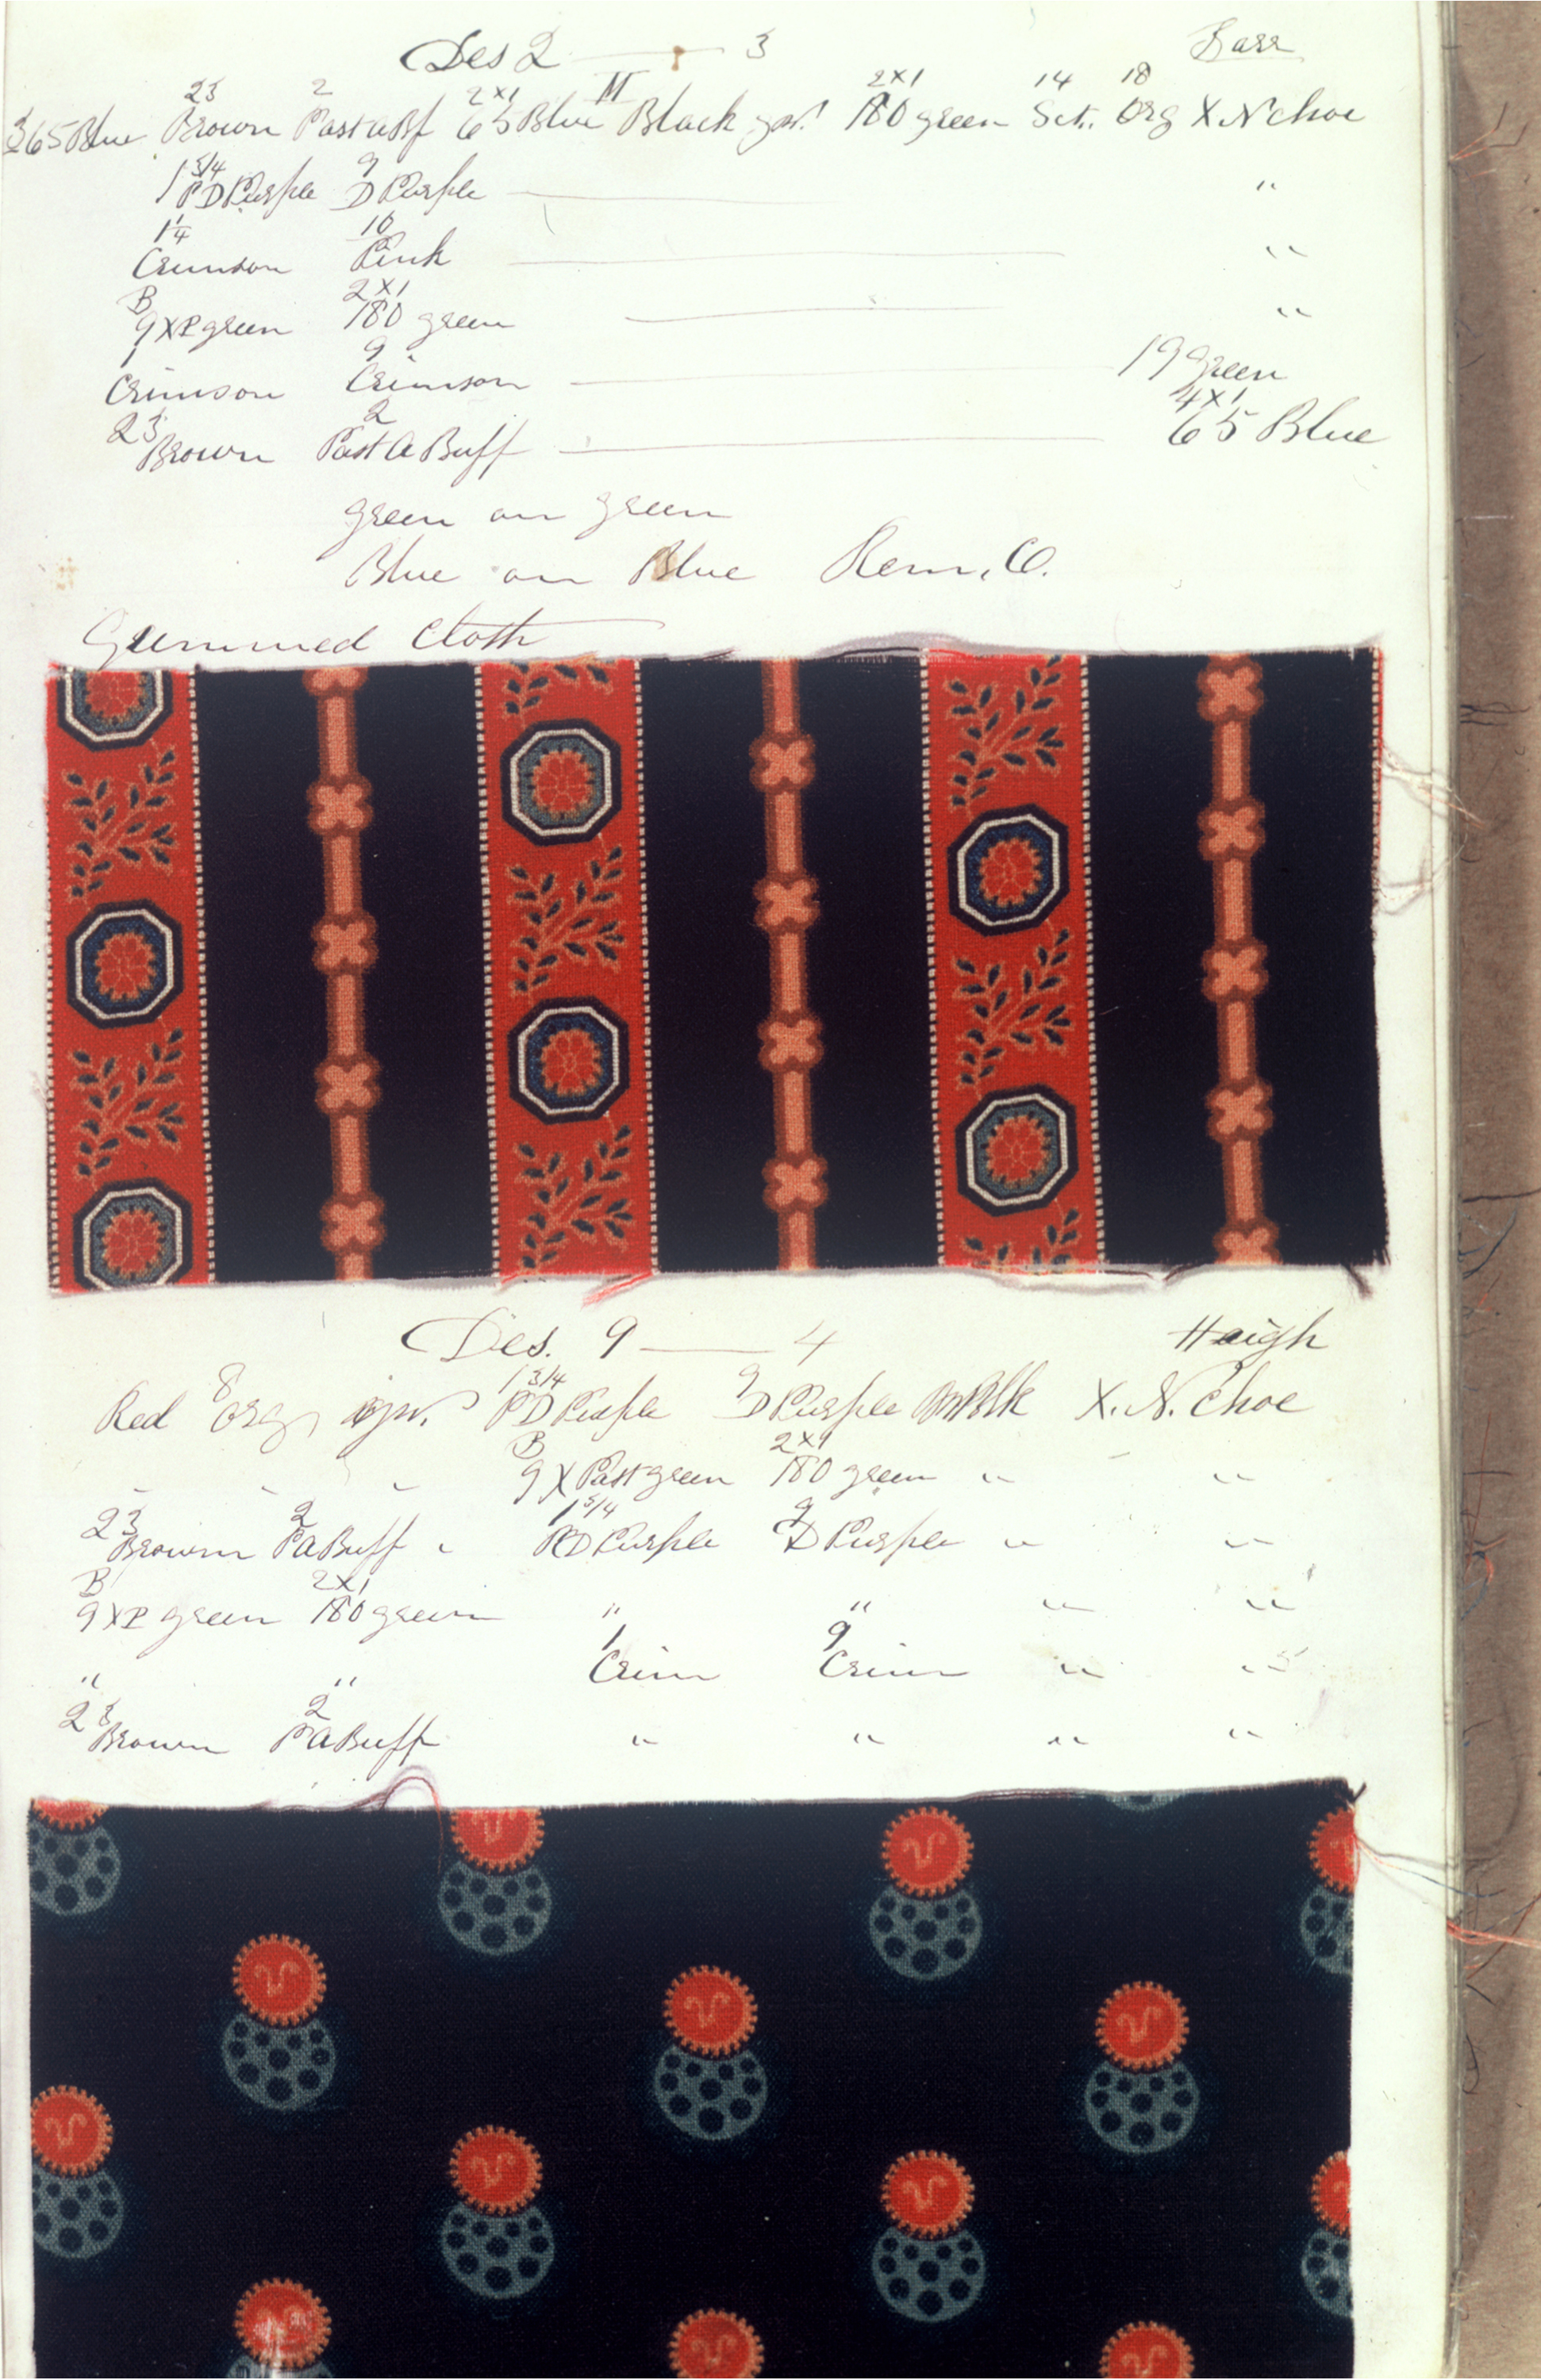 Des 2 — 3 Barr
23 2 2x1 M 2x1 14 18
365 Blue Brown Past a Bf 65 Blue Black 180 green Sct. Org X N Choc
1 3/4 9
PD Purple D Purple — "
1/4 10
Crimson Pink — "
B 2x1
9 XP green 180 green — "
1 9
Crimson Crimson — 19 Green
23 2 4x1
Brown Past A Buff — 65 Blue
green on green
Blue on Blue Rem. C.
Gummed Cloth
Des. 9 — 4 Haigh
8 1 3/4 9
Red Org PD Purple D Purple Blk X. N. Choc
B 2x1
" " " 9 X Past green 180 green " "
23 2 1 3/4 9
Brown P A Buff " PD Purple D Purple " "
B 2x1
9 XP green 180 green " " " "
1 9
" " Crim Crim " "
23 2
Brown P A Buff " " " "